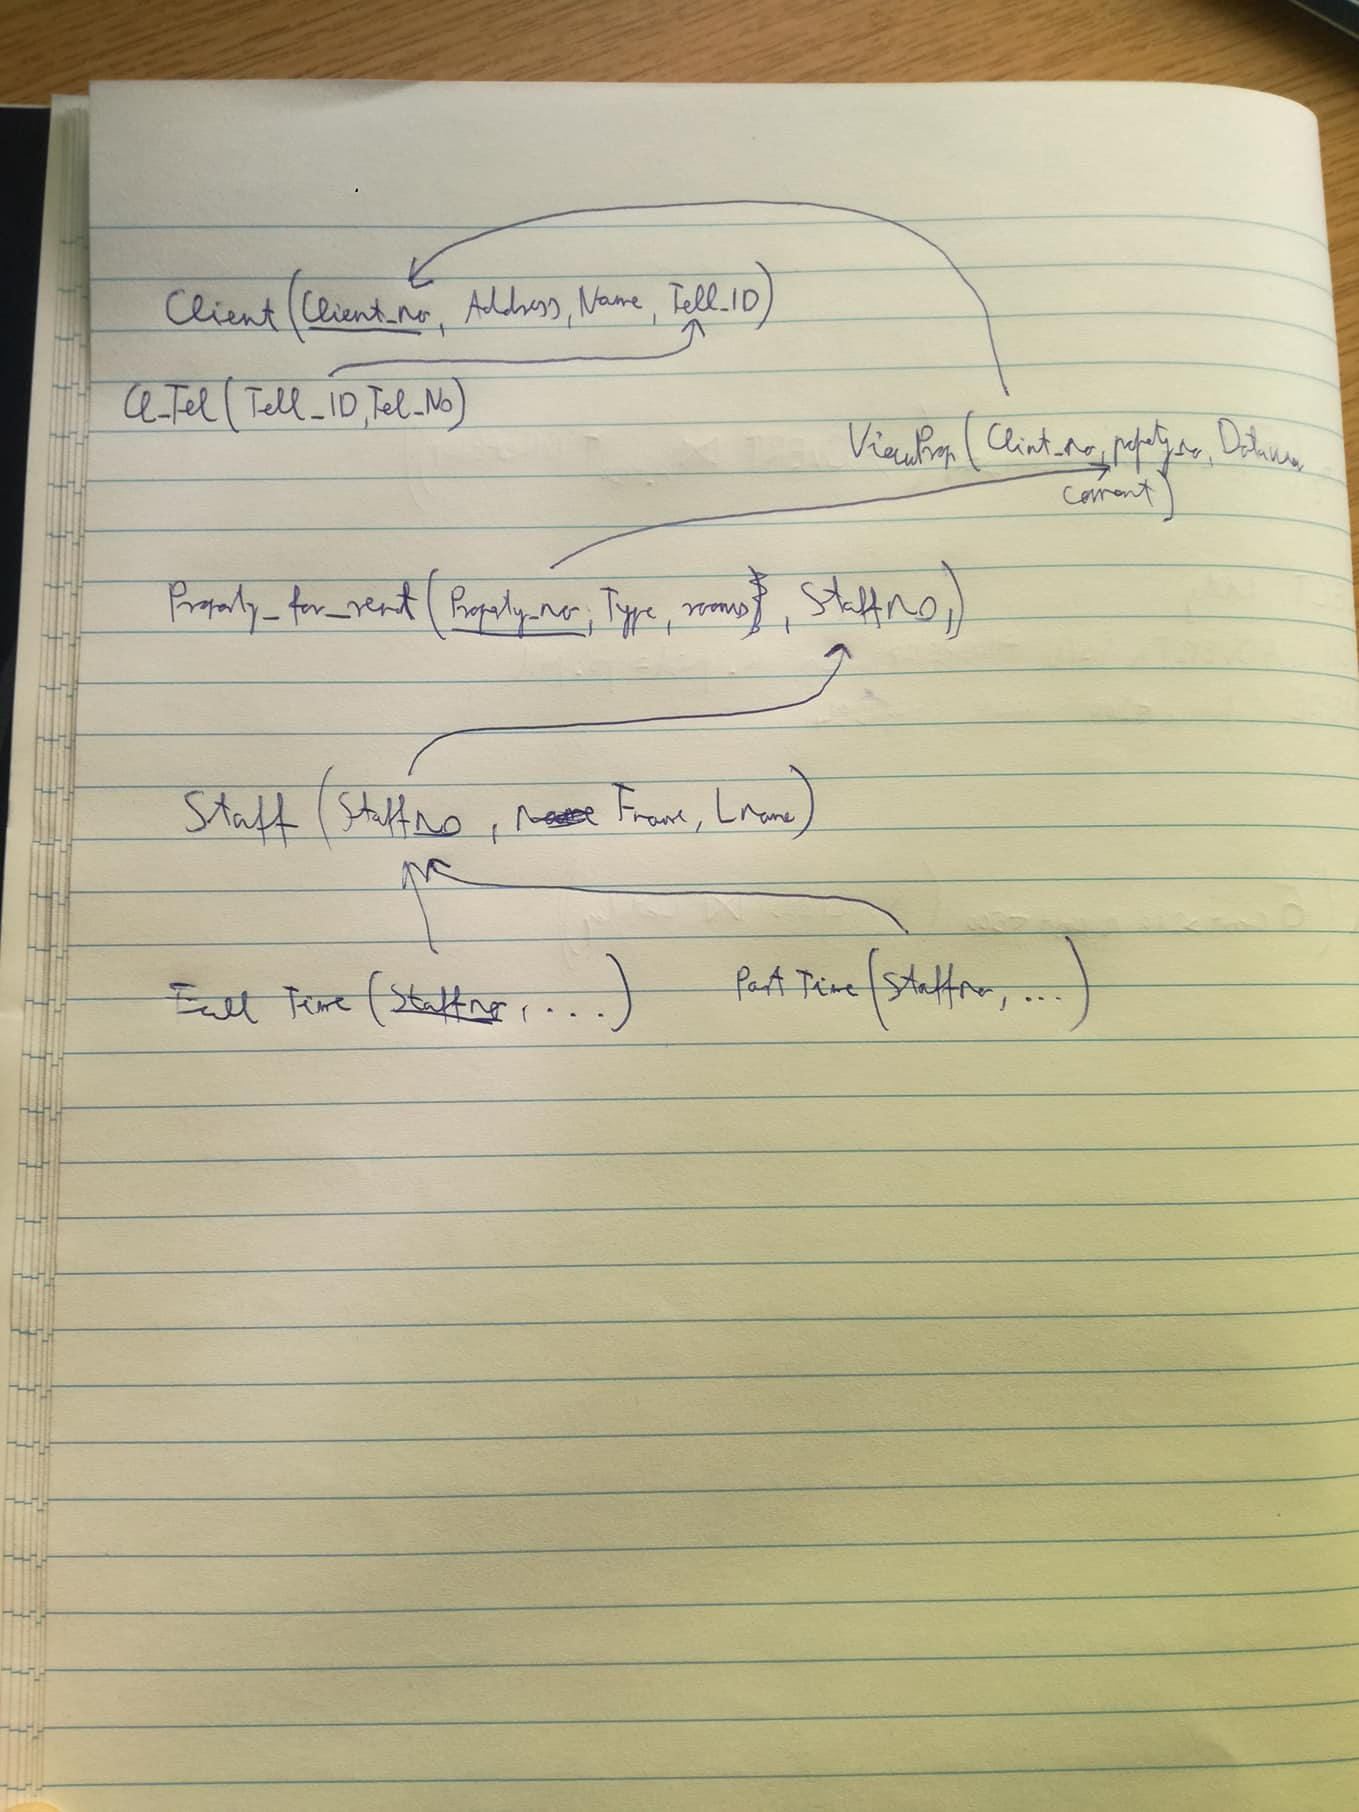 Client (Client_no, Address, Name, Tell_ID)
Cl_Tel (Tell_ID, Tel_No)
ViewProp (Clint_no, popety_no,
comment)
Property_for_rent (Property_no, Type, rooms, Staffno,)
Staff (Staffno, Fname, Lname)
Full Time (Staffno, ....)
Part Time (Staffno, ...)